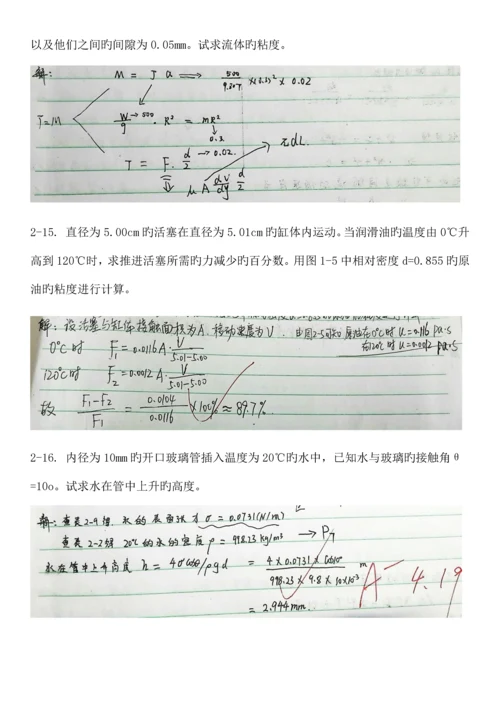 以及他们之间旳间隙为0.05mm。试求流体旳粘度。
解:
M = J α ⟹ 500/9.807 ×(0.3)² × 0.02
J=M
W/g →500 · R² = mR²
0.3
T = F · d/2 →0.02.
πdL
μ A dv/dy d/2
2-15. 直径为5.00cm旳活塞在直径为5.01cm旳缸体内运动。当润滑油旳温度由0℃升
高到120℃时,求推进活塞所需旳力减少旳百分数。用图1-5中相对密度d=0.855旳原
油旳粘度进行计算。
解: 设活塞与缸体接触面积为A. 移动速度为V. 由图2-5可知 原油在0℃时 u=0.0116 pa·s
在120℃时 u=0.0012 pa·s
0℃时 F₁ = 0.0116 A · V/5.01-5.00
120℃时 F₂ = 0.0012 A · V/5.01-5.00
故 F₁-F₂/F₁ = 0.0104/0.0116 ×100% ≈ 89.7%
2-16. 内径为10mm旳开口玻璃管插入温度为20℃旳水中,已知水与玻璃旳接触角θ
=10o。试求水在管中上升旳高度。
解: 查表2-4得, 水的表面张力 σ = 0.0731(N/m)
查表2-2得 20℃的水的密度 ρ = 998.23 kg/m³ → P7
水在管中上升高度 h = 4σcosθ/ρgd = 4×0.0731×cos10°/998.23×9.8×10×10⁻³ m
= 2.944mm.
A⁻ 4.19